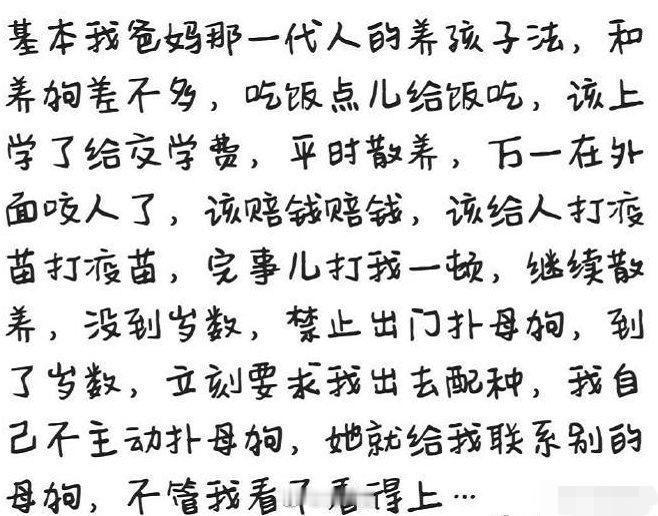 基本我爸妈那一代人的养孩子法，和
养狗差不多，吃饭点儿给饭吃，该上
学了给交学费，平时散养，万一在外
面咬人了，该赔钱赔钱，该给人打疫
苗打疫苗，完事儿打我一顿，继续散
养，没到岁数，禁止出门扑母狗，到
了岁数，立刻要求我出去配种，我自
己不主动扑母狗，她就给我联系别的
母狗，不管我看不看得上…